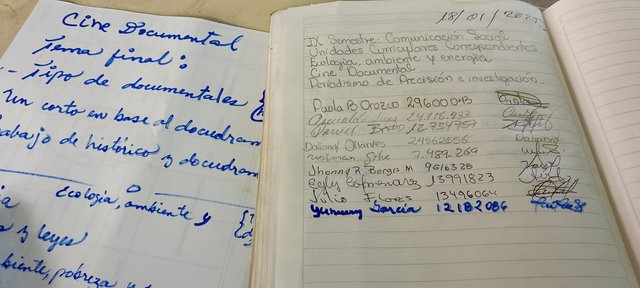 Cine Documental
Tema final:
- Tipo de documentales
Un corto en base al docudram
trabajo de histórico y docudram
Ecología, ambiente y
y leyes
biente, pobreza y
18/01/202
IX Semestre Comunicación Social
Unidades Curriculares Correspondientes
Ecología, ambiente y energía
Cine Documental
Periodismo de Precisión e investigación
Paola B Orozco 29600043
Daniel Brito 12.734757
Dalianny Olivares 24562056
Silva 7.489.269
Jhonny R Borges M 9516325
13991823
Julio Flores 13496064
García 12182086